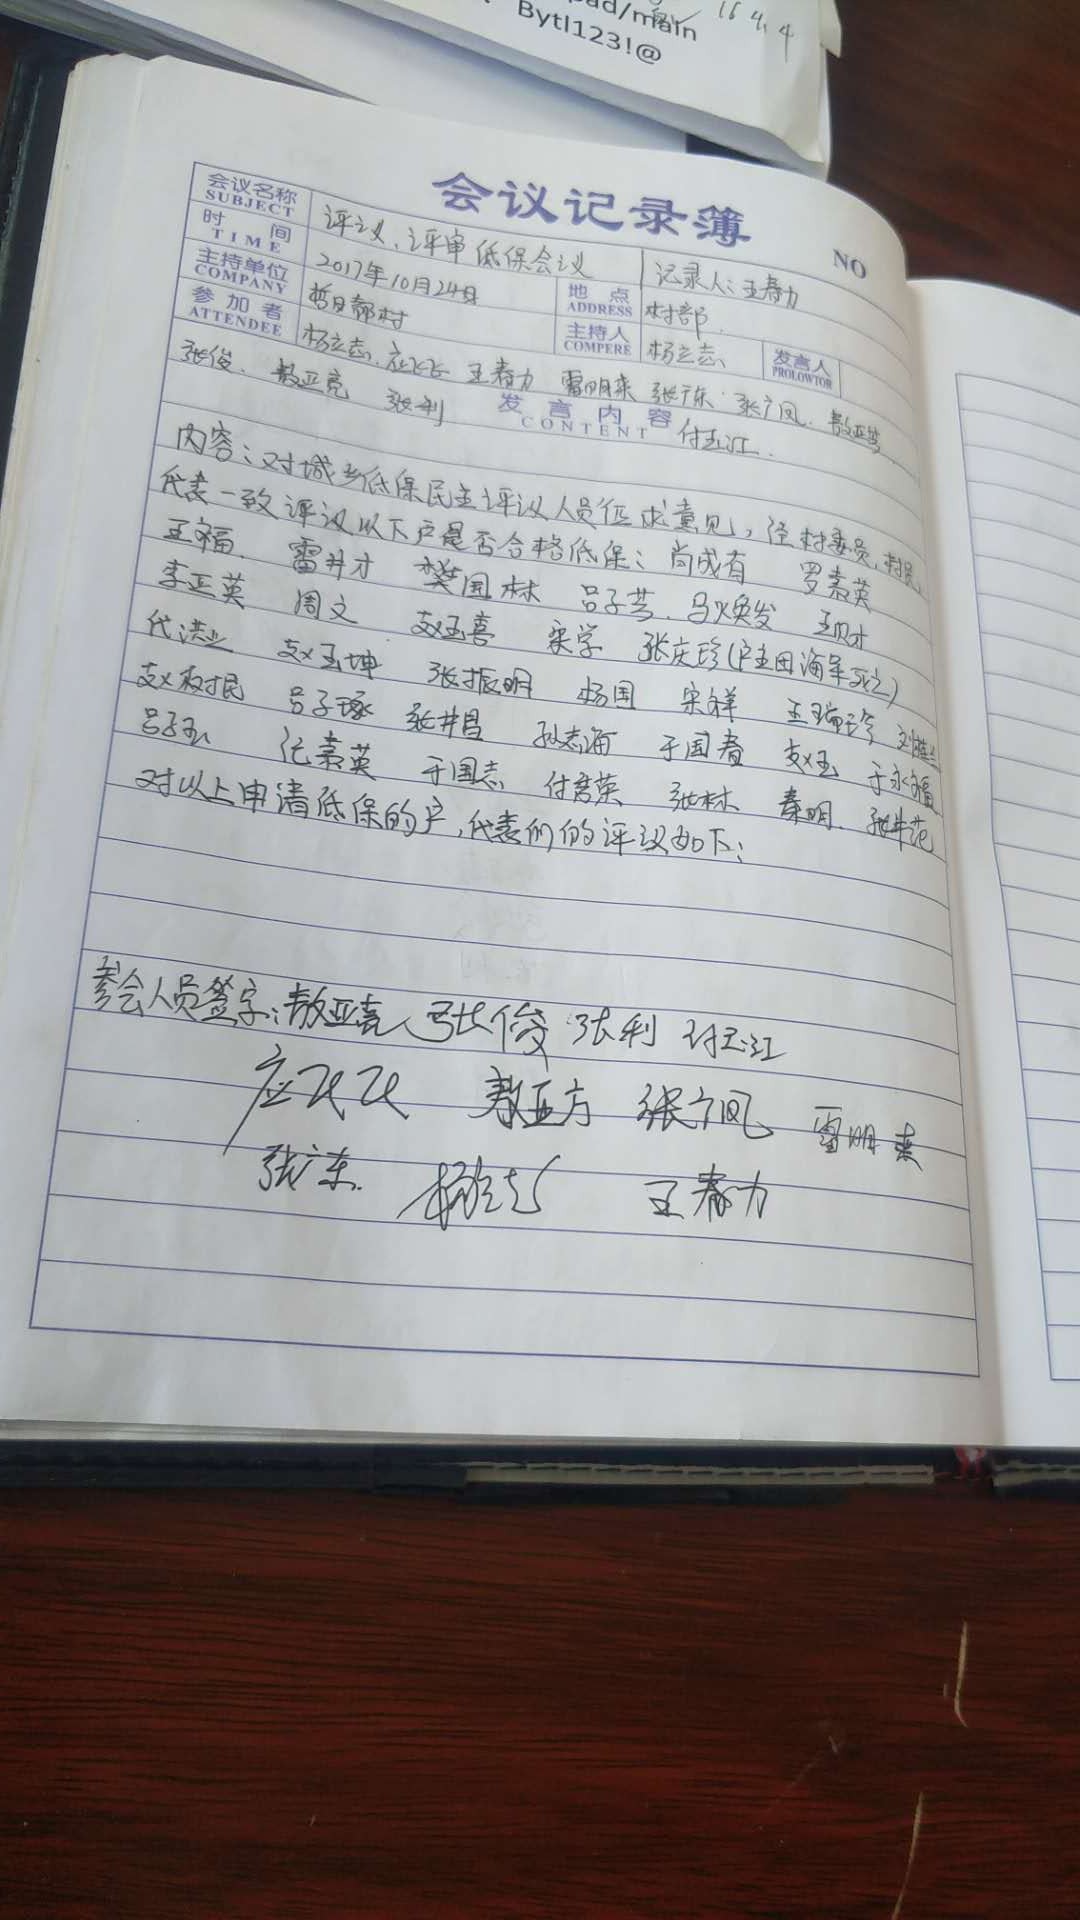 pad/main
16 4.4
Bytl123!@
会议记录簿
NO
会议名称 SUBJECT 评议、评审低保会议 记录人:王春力
时间 TIME 2017年10月24日 地点 ADDRESS 村部
主持单位 COMPANY 哲日都村 主持人 COMPERE 杨立志 发言人 PROLOWTOR
参加者 ATTENDEE 杨立志、应飞飞 王春力 雷明来 张广东 张广凤、敖亚芳
张俊、敖亚亮 张利 付玉江
发言内容
CONTENT
内容:对城乡低保民主评议人员征求意见,经村委员,村民
代表一致评议以下户是否合格低保:尚成有 罗素英
王福、雷井才 樊国林 吕子芸、马焕发 王财
李亚英 周文 赵玉喜 宋学 张庆珍(户主田海军死亡)
代洪业 赵玉坤 张振明 杨国 宋祥 王瑞珍
赵树民 吕子琢 张井昌 孙志海 于国春 赵玉 于永福
吕子玉 素英 于国志 付彦英 张林 秦明、张井范
对以上申请低保的户,代表们的评议如下:
参会人员签字:敖亚亮 张俊 张利 付玉江
应飞飞 敖亚方 张广凤 雷明来
张广东 杨立志 王春力